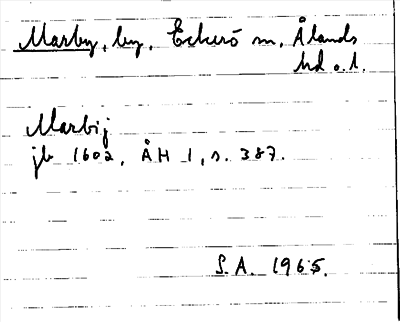 Marby, by, Eckerö sn, Ålands
hd o. l.
Marbij
jb 1602, ÅH 1, s. 387.
S.A. 1965.